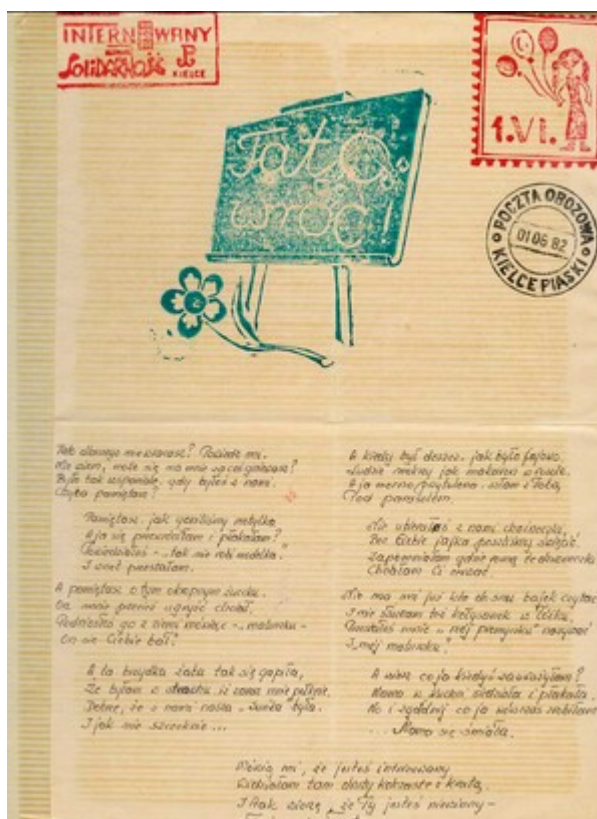 INTERNOWANY
Solidarność
KIELCE
1.VI.
Tato
wróć!
POCZTA OBOZOWA
01 06 82
KIELCE PIASKI
Tato dlaczego nie wracasz? Powiedz mi.
Nie wiem, może się na mnie
Było tak wspaniale, gdy byłeś z nami.
Chyba pamiętasz?
Pamiętasz, jak goniliśmy motylka
A ja się przewróciłam i płakałam?
Powiedziałeś - „tak nie robi modelka"
I wnet przestałam.
A pamiętasz o tym okropnym żuczku.
On mnie przecież ugryźć chciał.
Podniosłeś go z ziemi mówiąc - „maleńka -
On się Ciebie bał!"
A ta brzydka żaba tak się gapiła,
Że byłam w strachu iż zaraz mnie połknie.
Dobrze, że z nami nasza Sunia była.
I jak nie szczeknie ...
A kiedy był deszcz, jak było fajowo.
Ludzie mokrzy jak makaron w rosole.
A ja mocno przytulona, szłam z Tobą,
Pod parasolem.
Nie ubierałeś z nami choineczki,
Bez Ciebie jajka
Zapomniałam gdzie
Chciałam Ci
Nie ma mi już kto do snu bajek czytać
I nie słucham też kołysanek w łóżku.
mnie „mój promyczku" nazywać
I „mój maluszku."
A wiesz co ja kiedyś zauważyłam?
Mama w kuchni siedziała i płakała.
No i zgadnij co ja wówczas zrobiłam
... Mama się śmiała.
Mówią mi, że jesteś internowany
Widziałam tam druty kolczaste i kratą,
I tak wierzę, że Ty jesteś niewinny -